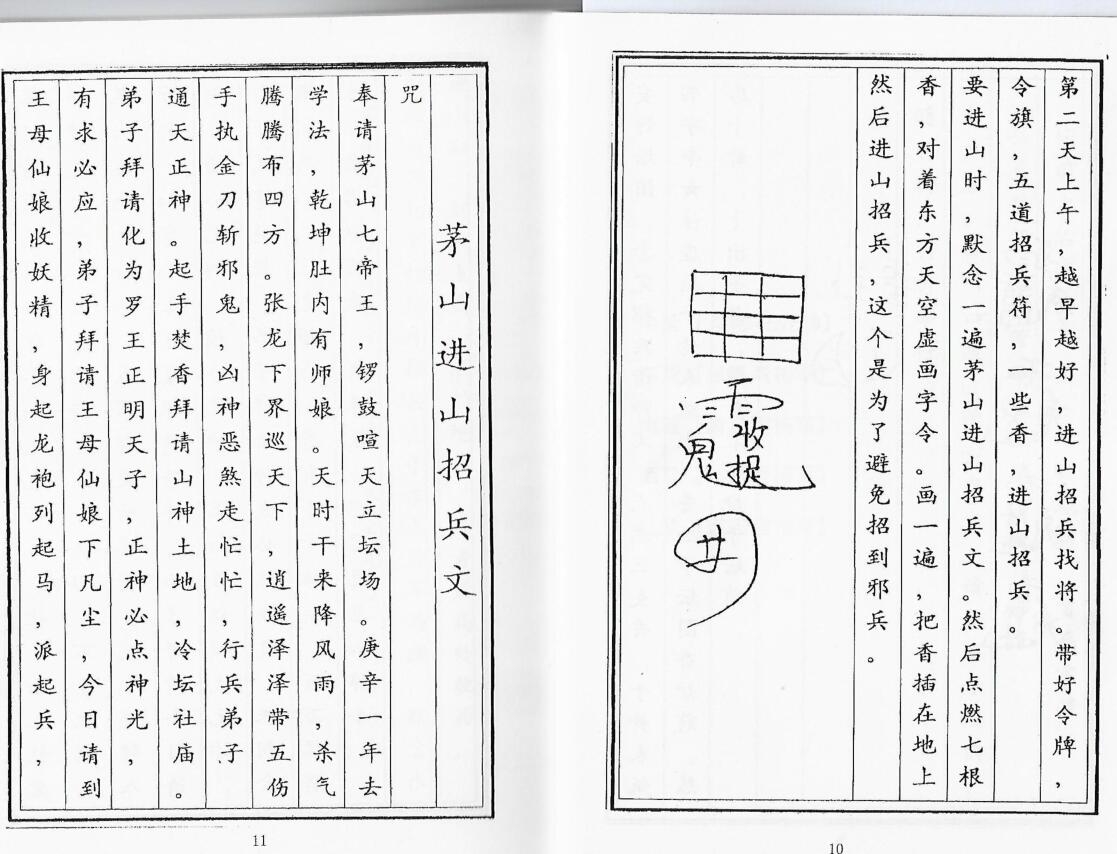 第二天上午,越早越好,进山招兵找将。带好令牌,
令旗,五道招兵符,一些香,进山招兵。
要进山时,默念一遍茅山进山招兵文。然后点燃七根
香,对着东方天空虚画字令。画一遍,把香插在地上
然后进山招兵,这个是为了避免招到邪兵。
鬼收捉
10
茅山进山招兵文
咒
奉请茅山七帝王,锣鼓喧天立坛场。庚辛一年去
学法,乾坤肚内有师娘。天时干来降风雨,杀气
腾腾布四方。张龙下界巡天下,逍遥泽泽带五伤
手执金刀斩邪鬼,凶神恶煞走忙忙,行兵弟子
通天正神。起手焚香拜请山神土地,冷坛社庙。
弟子拜请化为罗王正明天子,正神必点神光,
有求必应,弟子拜请王母仙娘下凡尘,今日请到
王母仙娘收妖精,身起龙袍列起马,派起兵,
11